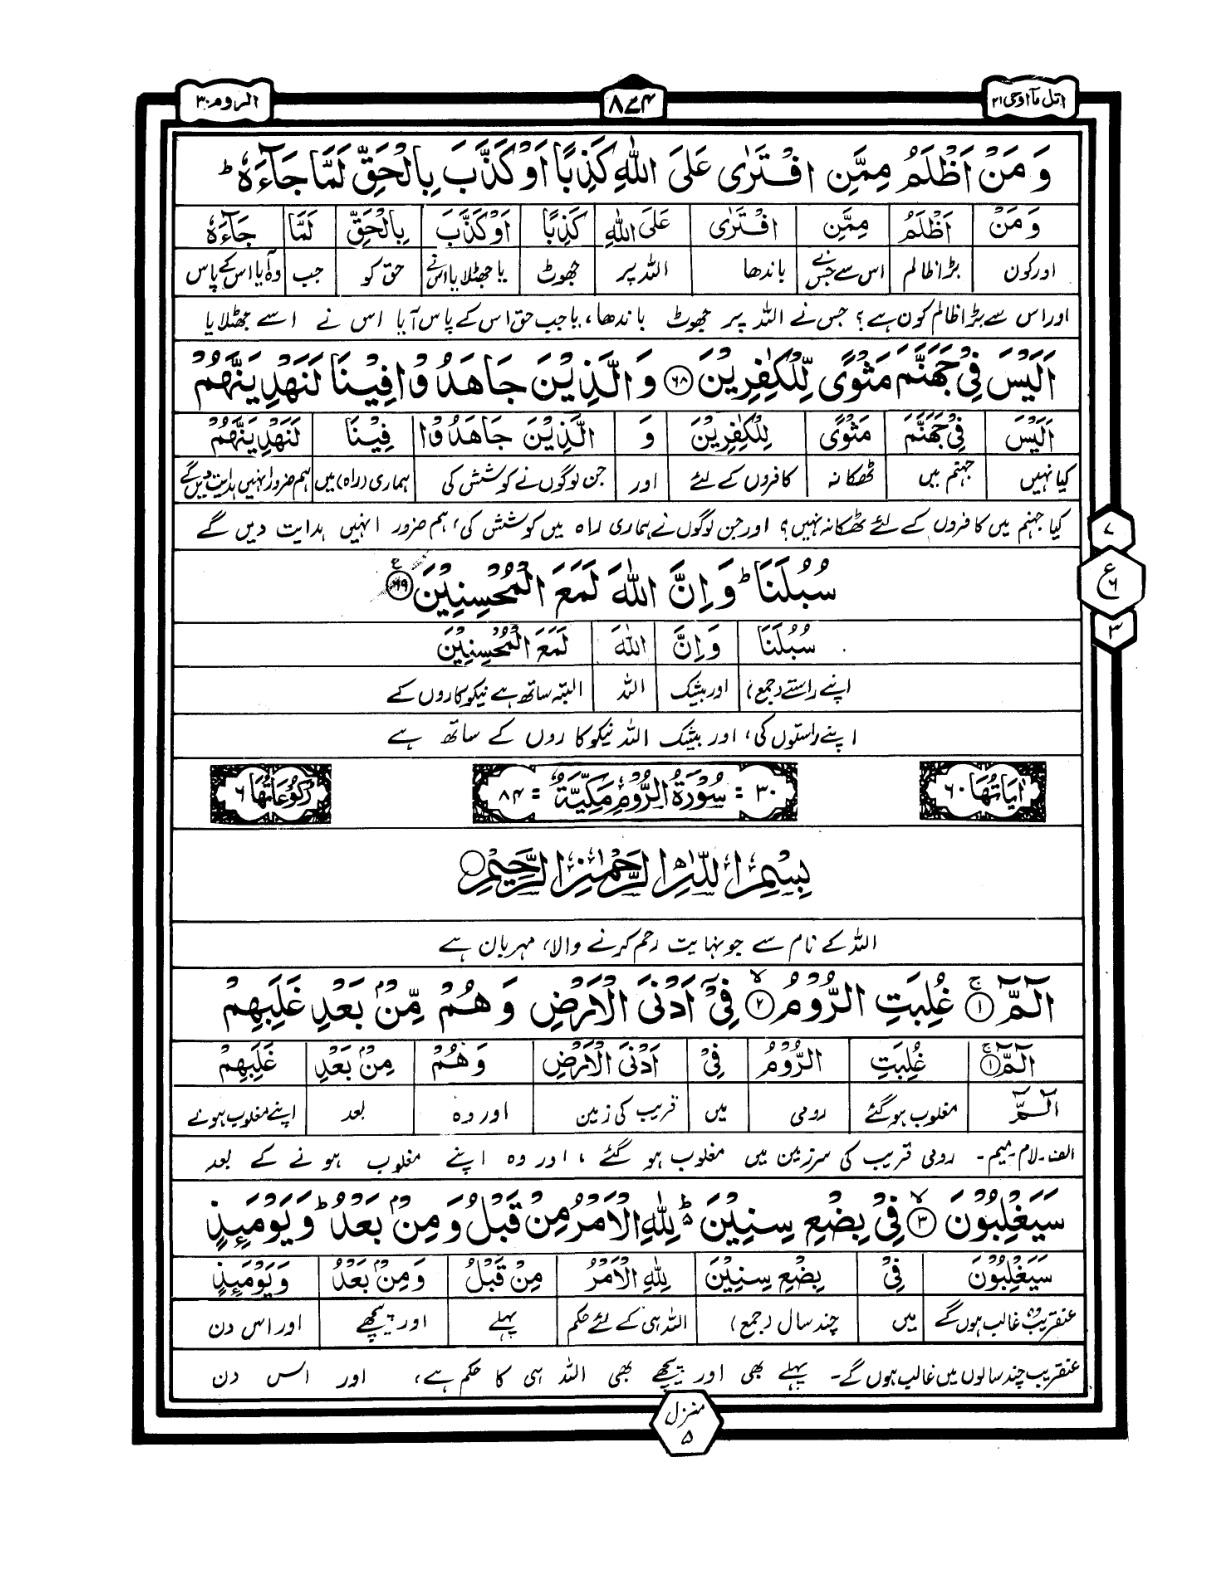 اتل مآ اوحی ۲۱
۸۷۴
الروم ۳۰
وَ مَنۡ اَظۡلَمُ مِمَّنِ افۡتَرٰی عَلَی اللّٰهِ کَذِبًا اَوۡ کَذَّبَ بِالۡحَقِّ لَمَّا جَآءَهٗ ؕ
وَ مَنۡ اَظۡلَمُ مِمَّنِ افۡتَرٰی عَلَی اللّٰهِ کَذِبًا اَوۡ کَذَّبَ بِالۡحَقِّ لَمَّا جَآءَهٗ
اور کون بڑا ظالم اس سے جس نے باندھا اللہ پر جھوٹ یا جھٹلایا اس نے حق کو جب وہ آیا اس کے پاس
اور اس سے بڑا ظالم کون ہے؟ جس نے اللہ پر جھوٹ باندھا، یا جب حق اس کے پاس آیا اس نے اسے جھٹلایا
اَلَیۡسَ فِیۡ جَهَنَّمَ مَثۡوًی لِّلۡکٰفِرِیۡنَ ﴿۶۸﴾ وَ الَّذِیۡنَ جَاهَدُوۡا فِیۡنَا لَنَهۡدِیَنَّهُمۡ
اَلَیۡسَ فِیۡ جَهَنَّمَ مَثۡوًی لِلۡکٰفِرِیۡنَ وَ الَّذِیۡنَ جَاهَدُوۡا فِیۡنَا لَنَهۡدِیَنَّهُمۡ
کیا نہیں جہنم میں ٹھکانہ کافروں کے لئے اور جن لوگوں نے کوشش کی ہماری (راہ) میں ہم ضرور انہیں ہدایت دیں گے
کیا جہنم میں کافروں کے لئے ٹھکانہ نہیں؟ اور جن لوگوں نے ہماری راہ میں کوشش کی، ہم ضرور انہیں ہدایت دیں گے
۷
ع
۶
۳
سُبُلَنَا ؕ وَ اِنَّ اللّٰهَ لَمَعَ الۡمُحۡسِنِیۡنَ ﴿۶۹﴾
سُبُلَنَا وَ اِنَّ اللّٰهَ لَمَعَ الۡمُحۡسِنِیۡنَ
اپنے راستے (جمع) اور بیشک اللہ البتہ ساتھ ہے نیکوکاروں کے
اپنے راستوں کی، اور بیشک اللہ نیکوکاروں کے ساتھ ہے
اٰیَاتُهَا ۶۰
۳۰ = سُوۡرَةُ الرُّوۡمِ مَکِّیَّةٌ = ۸۴
رُکُوۡعَاتُهَا ۶
بِسۡمِ اللّٰهِ الرَّحۡمٰنِ الرَّحِیۡمِ
اللہ کے نام سے جو نہایت رحم کرنے والا، مہربان ہے
الٓمّٓ ۚ﴿۱﴾ غُلِبَتِ الرُّوۡمُ ۙ﴿۲﴾ فِیۡۤ اَدۡنَی الۡاَرۡضِ وَ هُمۡ مِّنۡۢ بَعۡدِ غَلَبِهِمۡ
الٓمّٓ ۚ﴿۱﴾ غُلِبَتِ الرُّوۡمُ فِیۡۤ اَدۡنَی الۡاَرۡضِ وَ هُمۡ مِنۡۢ بَعۡدِ غَلَبِهِمۡ
الٓمّٓ مغلوب ہو گئے رومی میں قریب کی زمین اور وہ بعد اپنے مغلوب ہونے
الف۔لام۔میم۔ رومی قریب کی سرزمین میں مغلوب ہو گئے، اور وہ اپنے مغلوب ہونے کے بعد
سَیَغۡلِبُوۡنَ ۙ﴿۳﴾ فِیۡ بِضۡعِ سِنِیۡنَ ۬ؕ لِلّٰهِ الۡاَمۡرُ مِنۡ قَبۡلُ وَ مِنۡۢ بَعۡدُ ؕ وَ یَوۡمَئِذٍ
سَیَغۡلِبُوۡنَ فِیۡ بِضۡعِ سِنِیۡنَ لِلّٰهِ الۡاَمۡرُ مِنۡ قَبۡلُ وَ مِنۡۢ بَعۡدُ وَ یَوۡمَئِذٍ
عنقریب وہ غالب ہوں گے میں چند سال (جمع) اللہ ہی کے لئے حکم پہلے اور پیچھے اور اس دن
عنقریب چند سالوں میں غالب ہوں گے۔ پہلے بھی اور پیچھے بھی اللہ ہی کا حکم ہے، اور اس دن
منزل
۵